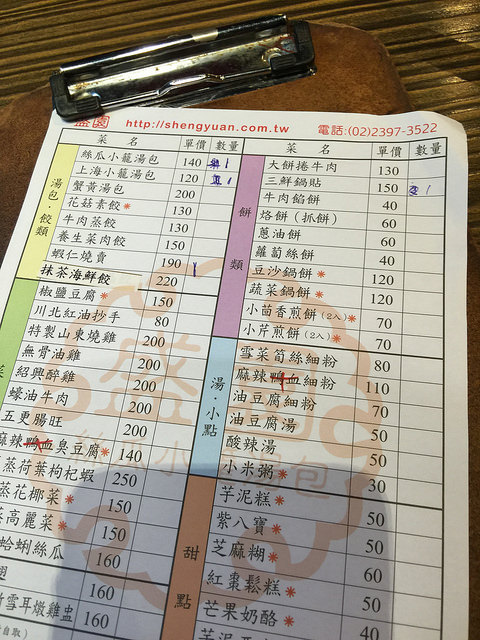 盛園 http://shengyuan.com.tw 電話:(02)2397-3522
菜 名 單價 數量
湯包・餃類
絲瓜小籠湯包 140 1
上海小籠湯包 120 1
蟹黃湯包 200
花菇素餃* 130
牛肉蒸餃 130
養生菜肉餃 150
蝦仁燒賣 190 1
抹茶海鮮餃 220
椒鹽豆腐* 150
川北紅油抄手 80
特製山東燒雞 200
無骨油雞 200
紹興醉雞 200
蠔油牛肉 200
五更腸旺 200
麻辣鴨血臭豆腐* 140
蒸荷葉枸杞蝦 250
蒸花椰菜* 150
高麗菜* 150
蛤蜊絲瓜 160
160
雪耳燉雞盅 160
自取)
菜 名 單價 數量
餅類
大餅捲牛肉 130
三鮮鍋貼 150 1
牛肉餡餅 40
烙餅(抓餅) 60
蔥油餅 60
蘿蔔絲餅 40
豆沙鍋餅* 120
蔬菜鍋餅* 120
小茴香煎餅(2入)* 70
小芹煎餅(2入)* 70
湯・小點
雪菜筍絲細粉 80
麻辣鴨血細粉 110
油豆腐細粉 70
油豆腐湯 50
酸辣湯 50
小米粥* 30
甜點
芋泥糕* 50
紫八寶* 50
芝麻糊* 60
紅棗鬆糕* 50
芒果奶酪* 40